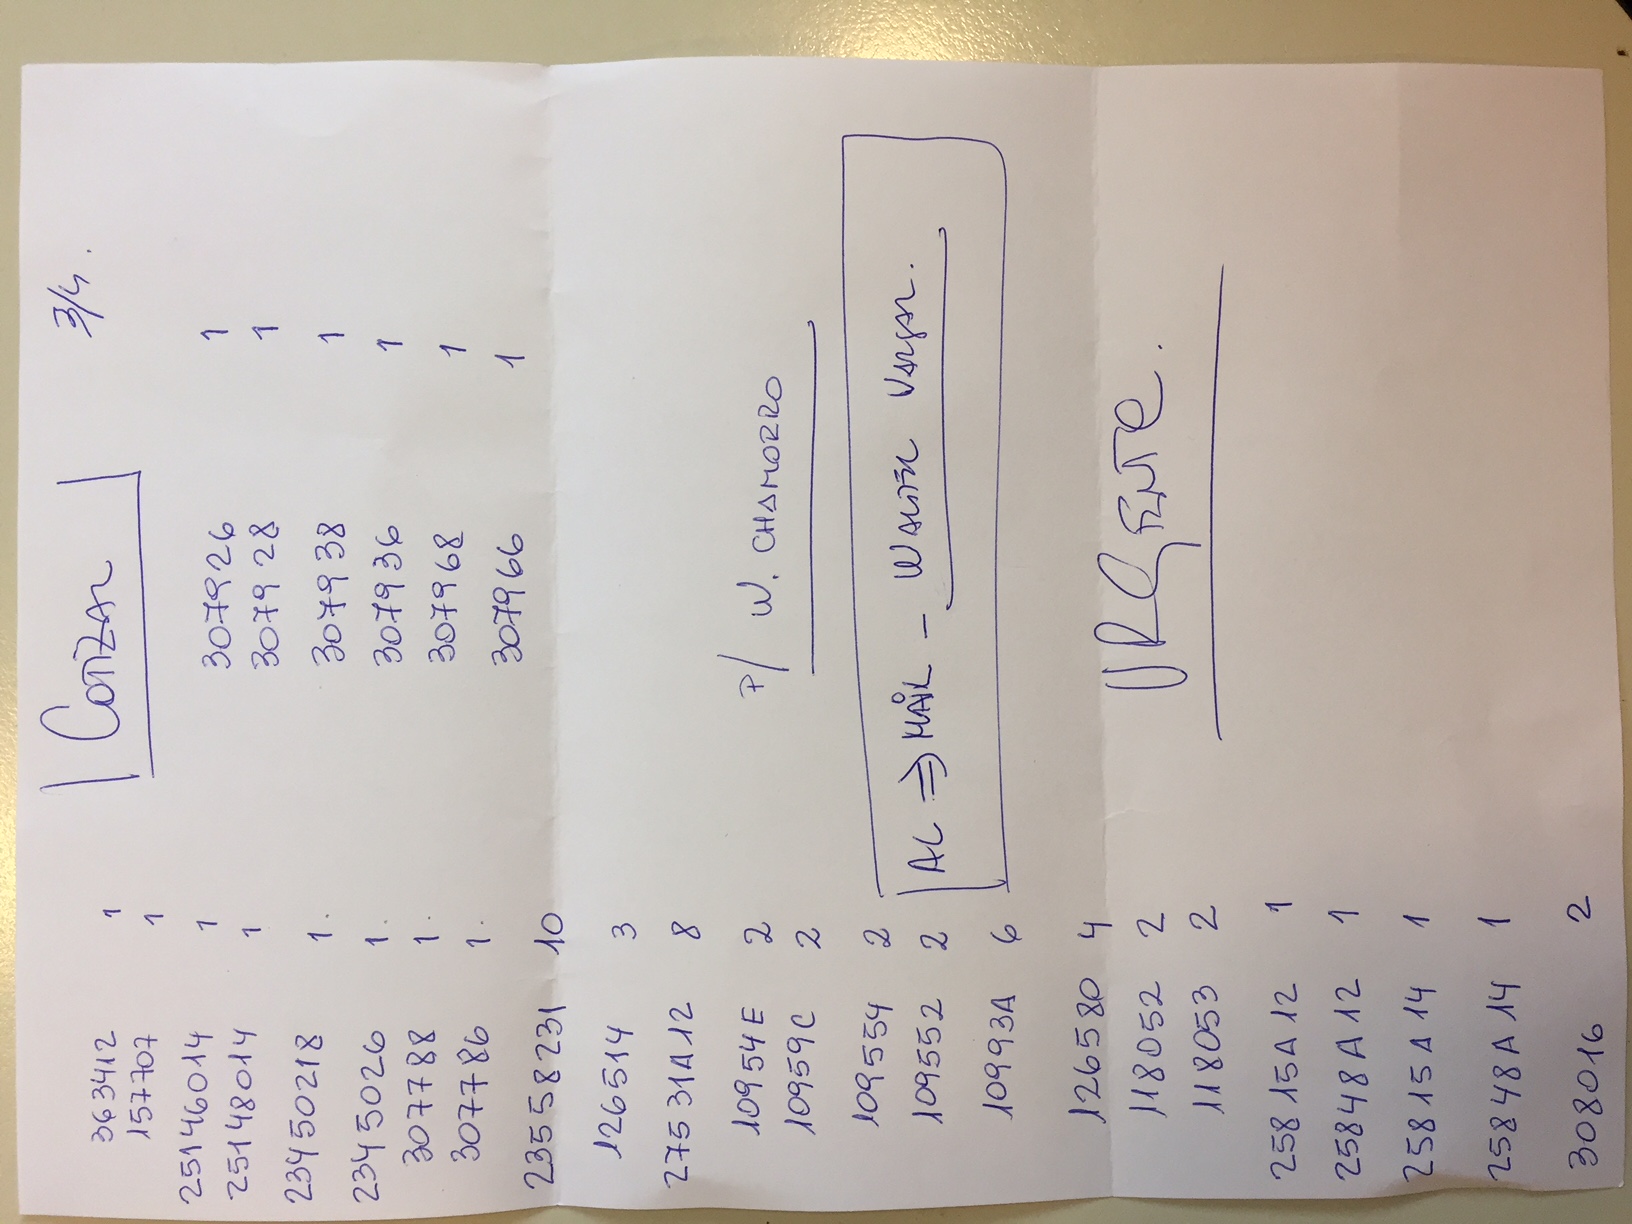 Cotizar
3/4.
363412 1
157707 1
25146014 1
25148014 1
23450218 1.
2345026 1.
307788 1.
307786 1.
23558231 10
126514 3
27531A12 8
10954E 2
10959C 2
109554 2
109552 2
10993A 6
126580 4
118052 2
118053 2
25815A12 1
25848A12 1
25815A14 1
25848A14 1
308016 2
307926 1
307928 1
307938 1
307936 1
307968 1
307966 1
P/ W. CHAMORRO
AL ⇒ MAIL - WALTER VARGAR.
URGENTE.